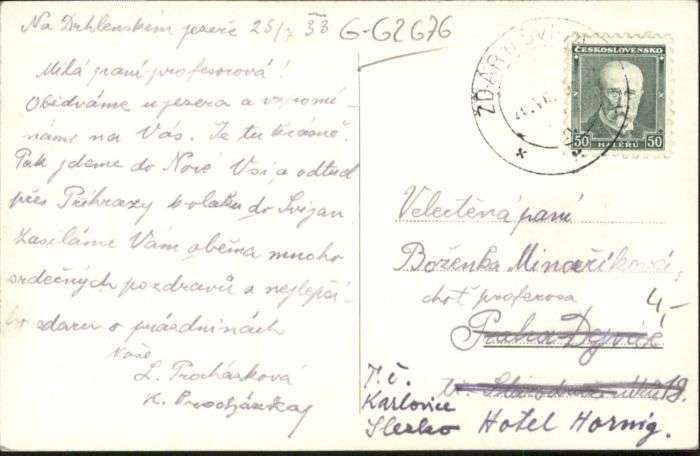 Na Drhlenském jezeře 25/7 33
G-62676
Milá paní profesorová!
Obědváme u jezera a vzpomí-
náme na Vás. Je tu krásně.
Pak jdeme do Nové Vsi a odtud
přes Příhrazy k vlaku do Svijan
Zasíláme Vám oběma mnoho
srdečných pozdravů a nejlepší-
ho zdaru o prázdninách
Vaše
L. Procházková
K. Procházka
ŽĎÁR U
ČESKOSLOVENSKO
50 HALÉŘŮ 50
Velectěná paní
Boženka Minaříková,
choť profesora
4,-
Praha Dejvice
T. č.
Karlovice
Slezsko Hotel Hornig.